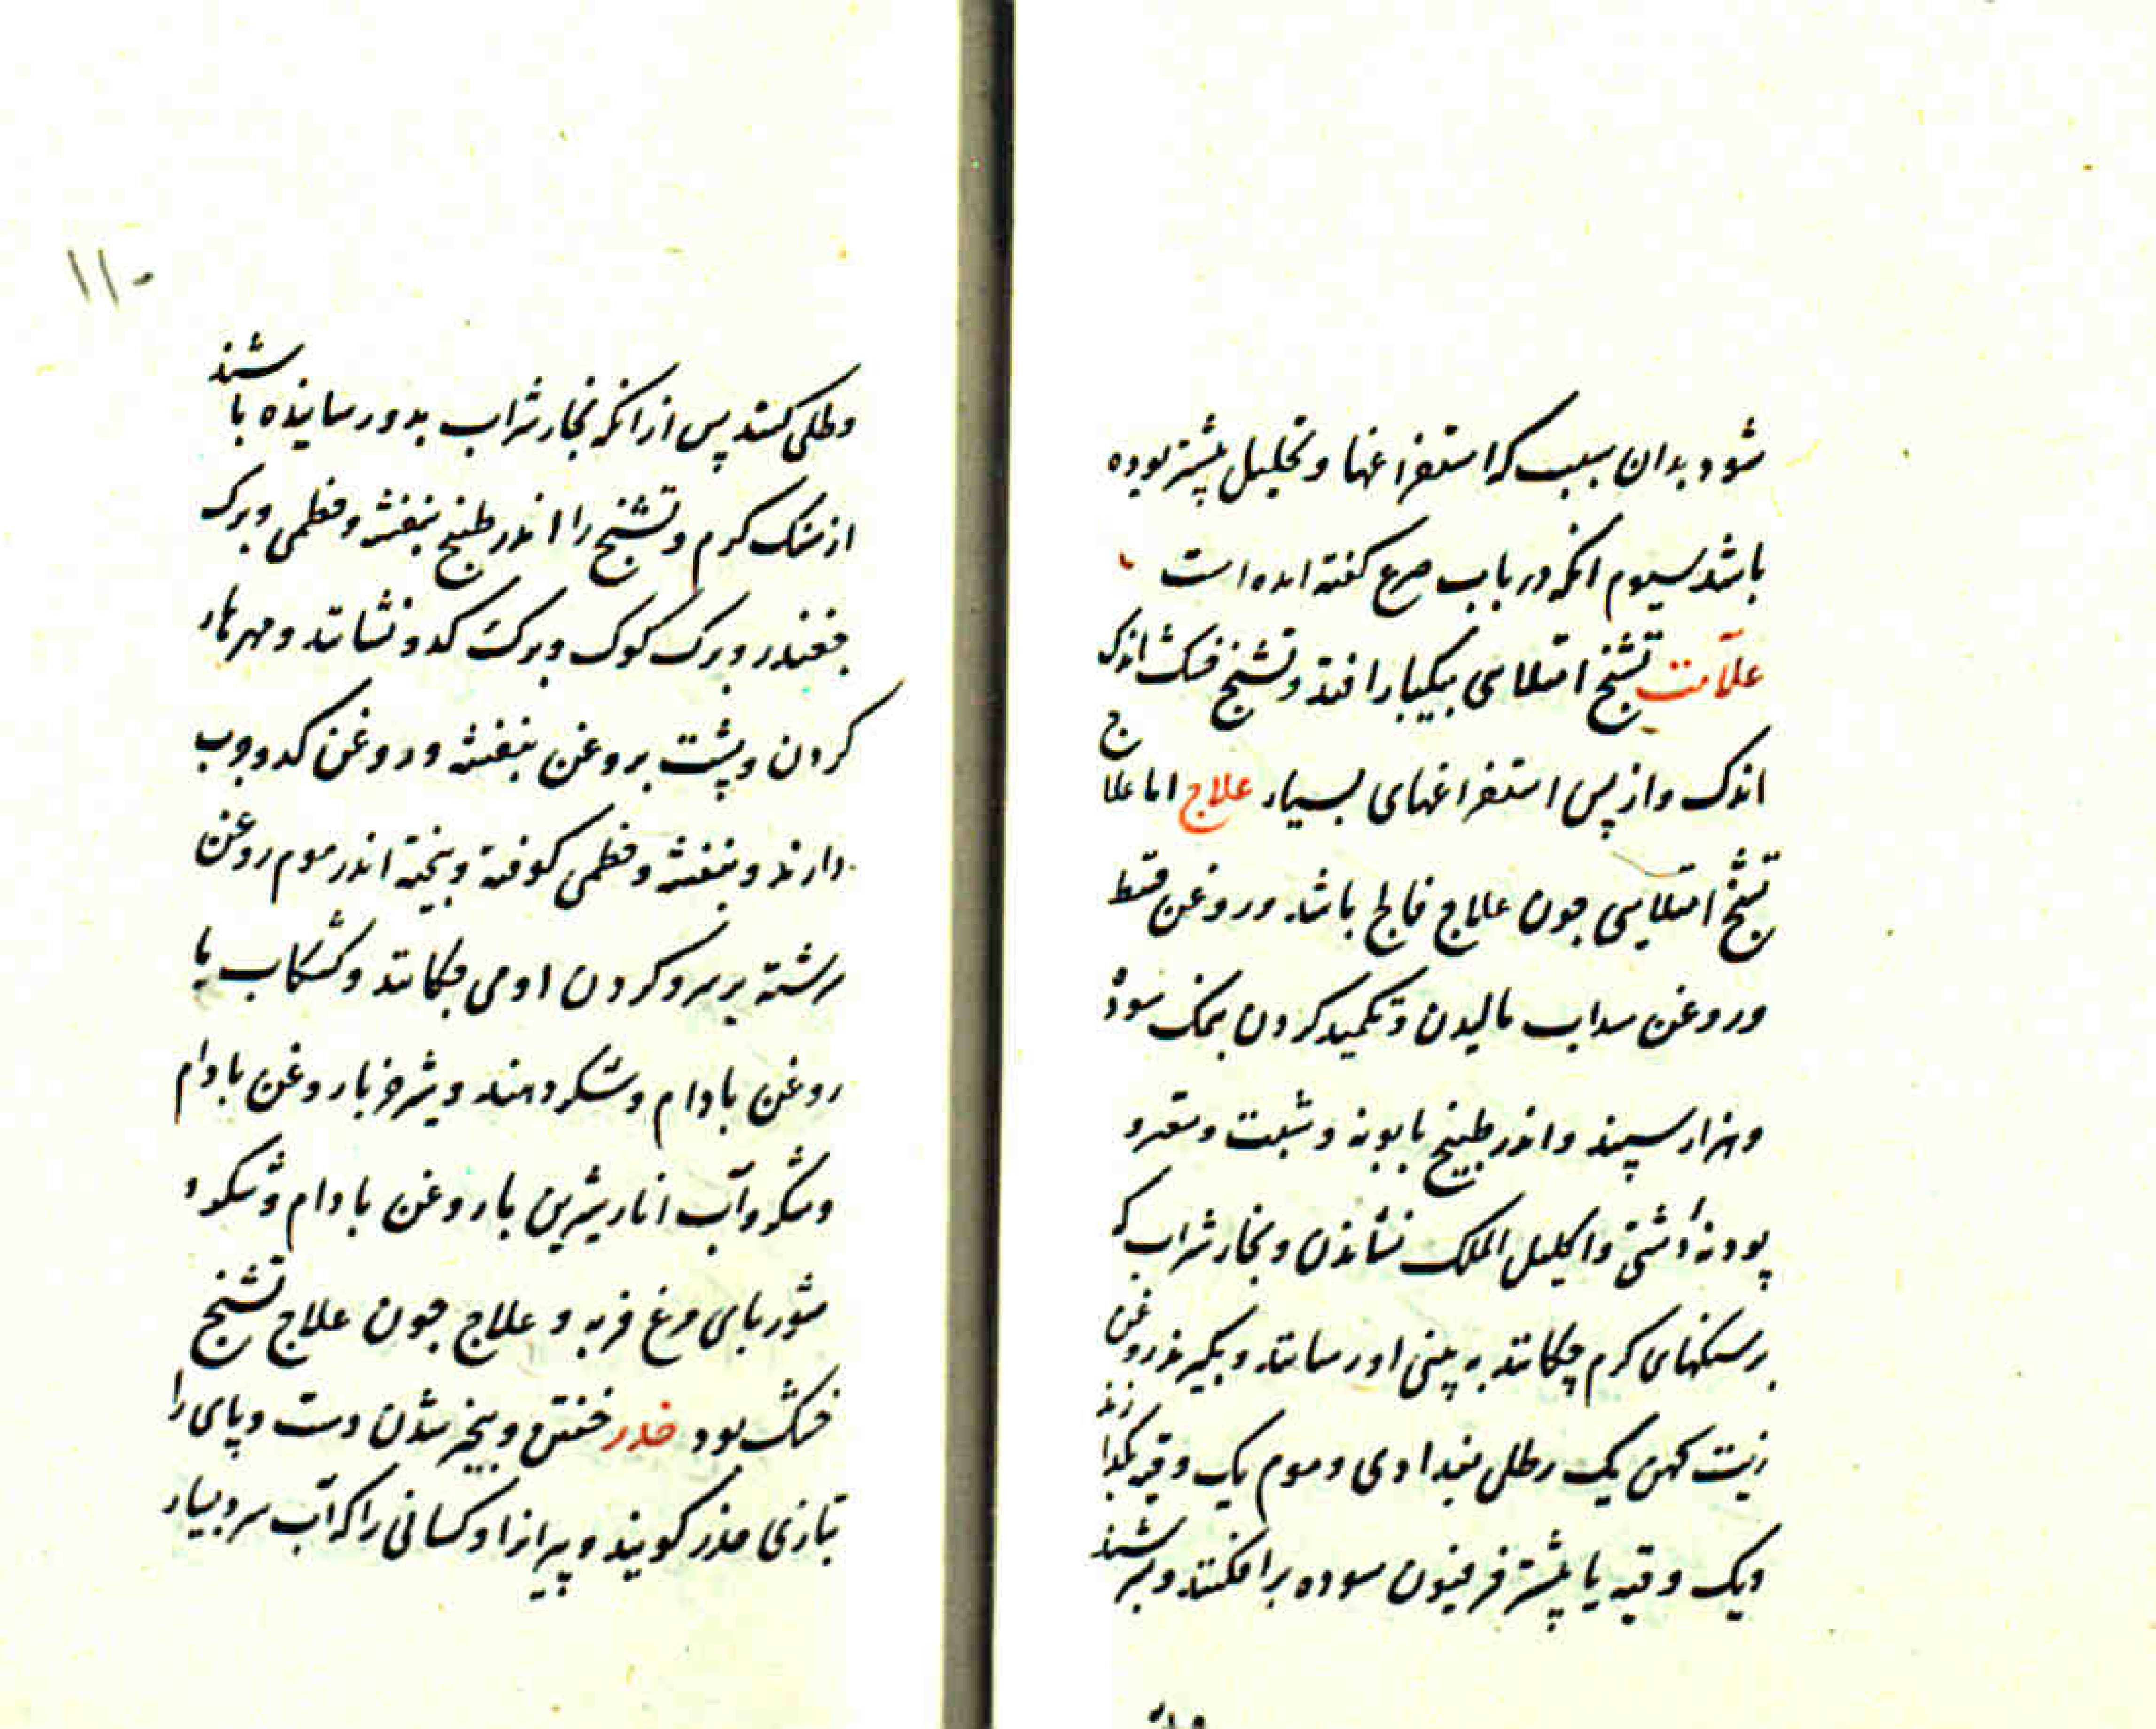 شود بدان سبب که استفراغها و تحلیل پیشتر بوده
باشد سیوم انکه در باب صرع کفته امده است
علامت تشنج امتلاسی بیکبار افتد و تشنج خشک اندک
اندک و از پس استفراغهای بسیار علاج اما علاج
تشنج امتلایی جون علاج فالج باشد و روغن قسط
و روغن سداب مالیدن و تکمید کردن بنمک سوده
و هزار سپند و اندر طبیخ بابونه و شبت و سعد و
پودنه دشتی و اکلیل الملک نشاندن و بخار شراب که
بر سنکهای کرم چکانند به بینی او رسانند و بکیرند روغن
زیت کهن یک رطل بغدادی و موم یک وقیه بکدازند
و یک وقیه یا پیشتر فرفیون سوده برافکنند و بسرشند
۱۱۰
و طلی کنند پس از انکه بخار شراب بدو رسانیده باشند
از سنک کرم و تشنج را اندر طبیخ بنفشه و خطمی و برک
جغندر و برک کوک و برک کدو نشانند و مهرهاء
کردن و پشت بروغن بنفشه و روغن کدو جرب
دارند و بنفشه و خطمی کوفته و بیخته اندر موم روغن
سرشته بر سر و کردن او می جکانند و کشکاب با
روغن بادام و شکر دهند و شیر خر با روغن بادام
و شکر و آب انار شیرین با روغن بادام و شکر و
شوربای مرغ فربه و علاج جون علاج تشنج
خشک بود خدر خفتن و بیخبر شدن دست و پای را
بتازی خدر کویند و پیرانرا و کسانی را که آب سرد بسیار